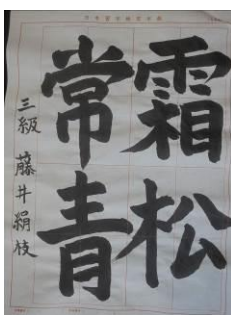 霜松
常青
三級 藤井絹枝